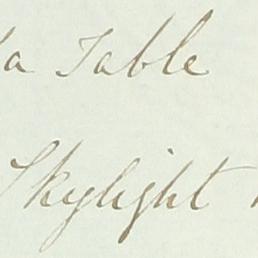 a Table
Skylight